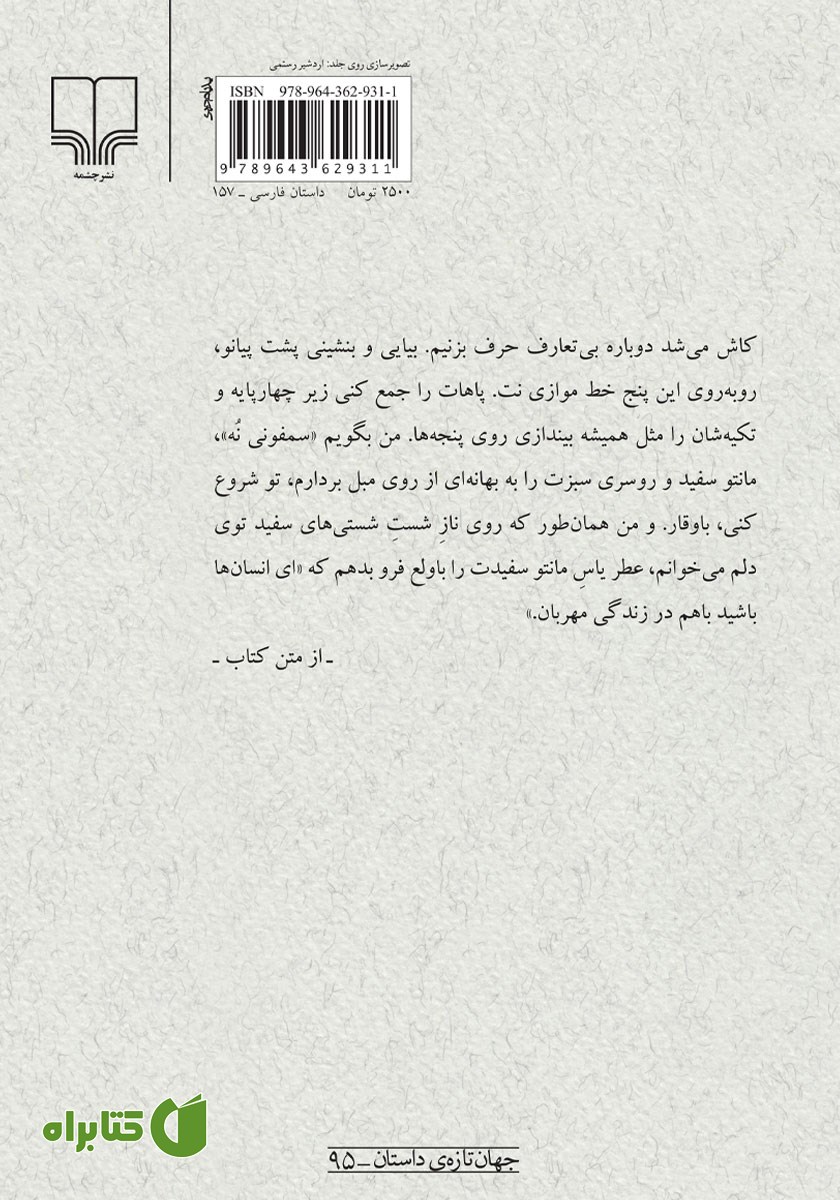 تصویرسازی روی جلد: اردشیر رستمی
ISBN 978-964-362-931-1
9 789643 629311
۲۵۰۰ تومان داستان فارسی ـ ۱۵۷
نشرچشمه
کاش می‌شد دوباره بی‌تعارف حرف بزنیم. بیایی و بنشینی پشت پیانو،
روبه‌روی این پنج خط موازی نت. پاهات را جمع کنی زیر چهارپایه و
تکیه‌شان را مثل همیشه بیندازی روی پنجه‌ها. من بگویم «سمفونی نُه»،
مانتو سفید و روسری سبزت را به بهانه‌ای از روی مبل بردارم، تو شروع
کنی، باوقار. و من همان‌طور که روی نازِ شستِ شستی‌های سفید توی
دلم می‌خوانم، عطر یاسِ مانتو سفیدت را باولع فرو بدهم که «ای انسان‌ها
باشید باهم در زندگی مهربان.»
ـ از متن کتاب ـ
کتابراه
جهان تازه‌ی داستان ـ ۹۵